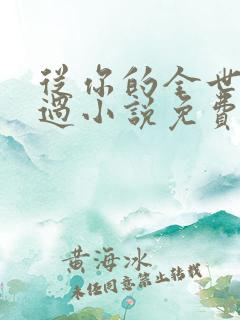 從你的全世
過小說免費
黄海冰
未经同意禁止转载